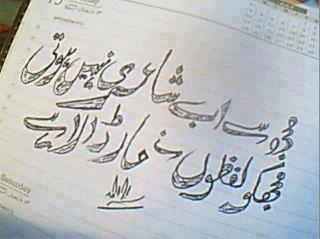 مجھ سے اب شاعری نہیں ہوتی
مجھکو لفظوں نے مار ڈالا ہے
Saturday